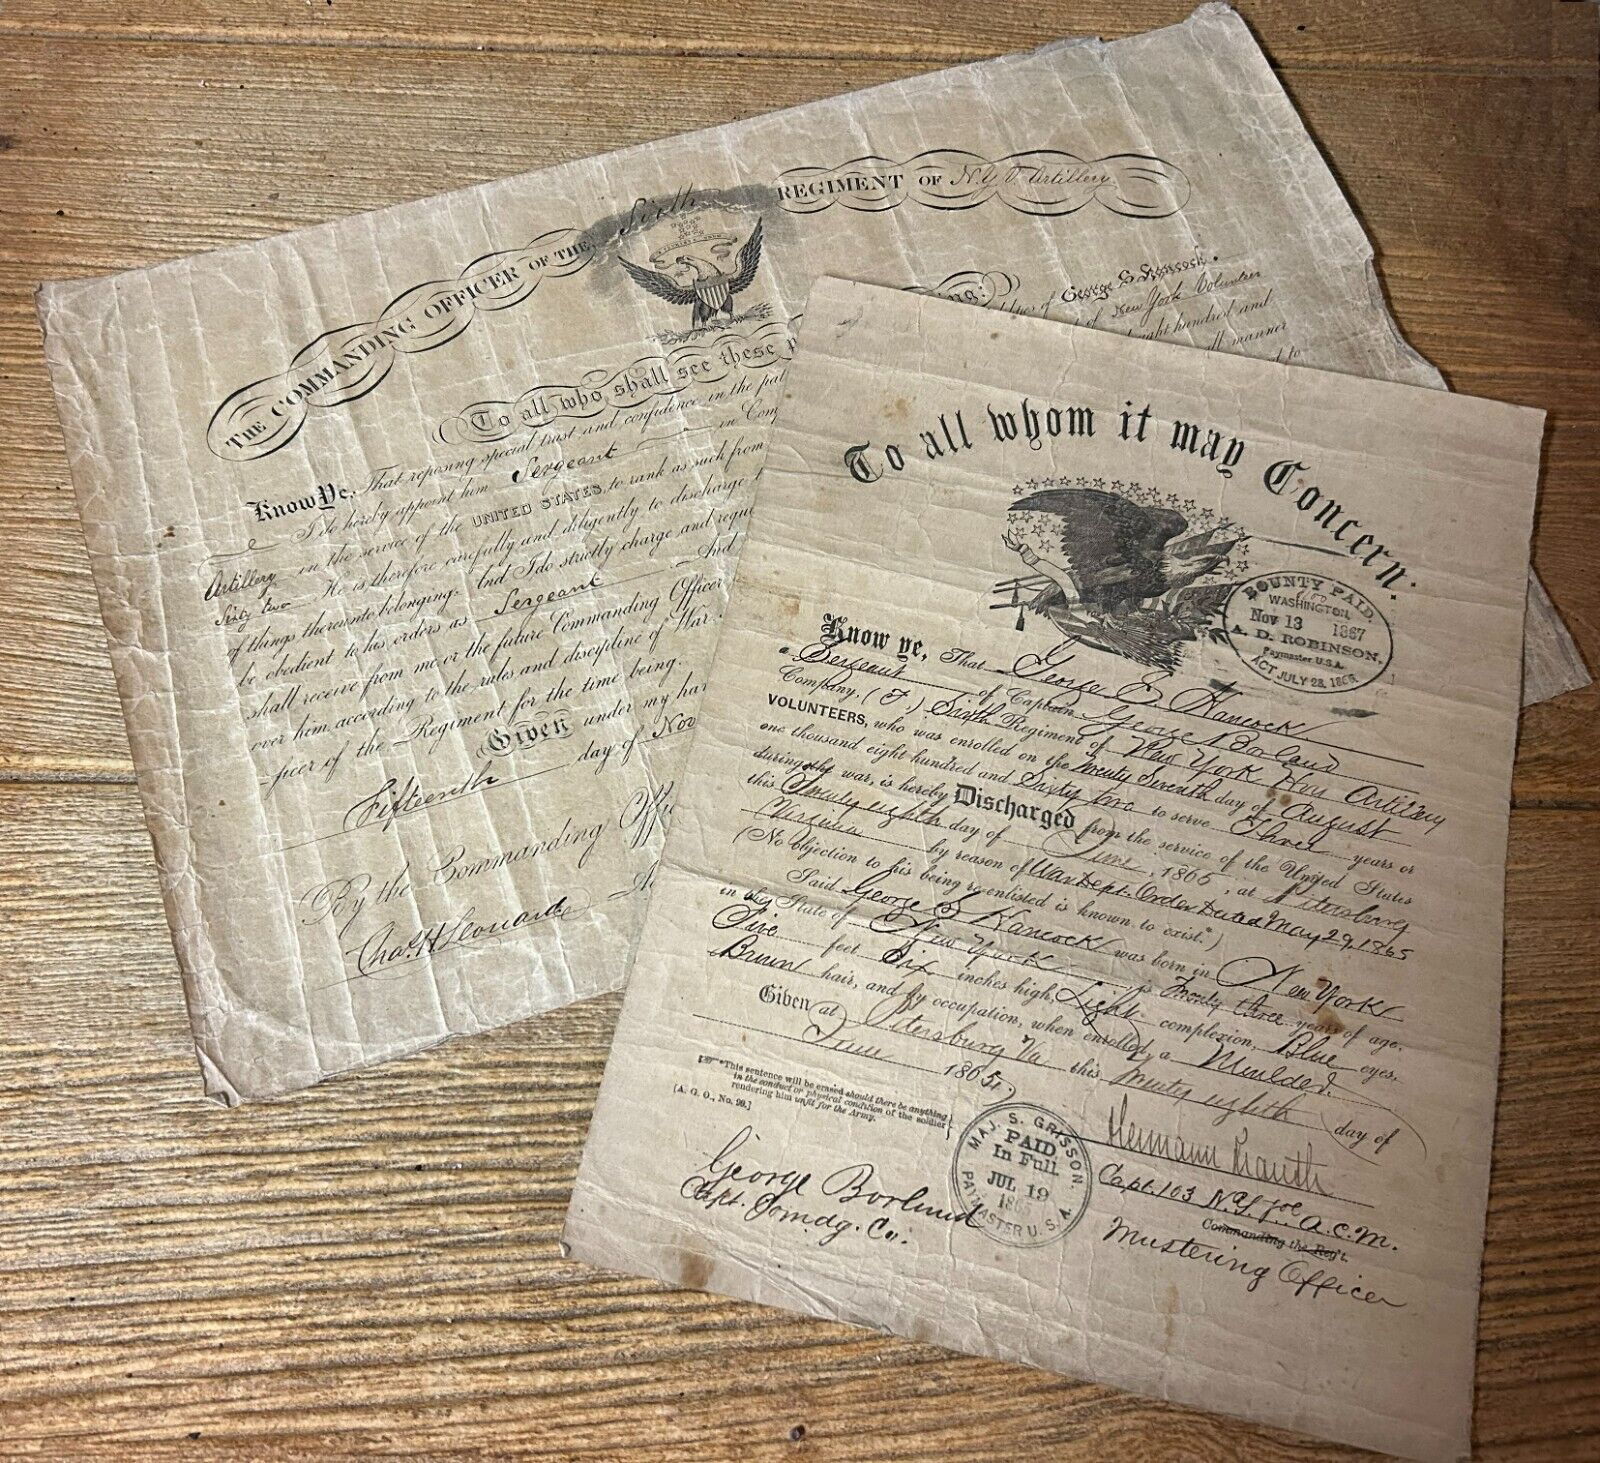 THE COMMANDING OFFICER OF THE Sixth REGIMENT OF N.Y.V. Artillery
To all who shall see these
Know Ye, That reposing special trust and confidence in the
of George S. Hancock.
I do hereby appoint him Sergeant in
of New York Volunteer
Artillery in the service of the UNITED STATES, to rank as such from
eight hundred and
Sixty two He is therefore carefully and diligently to discharge
all manner
of things thereunto belonging. And I do strictly charge and
to
be obedient to his orders as Sergeant And
shall receive from me or the future Commanding Officer
over him, according to the rules and discipline of War.
-ficer of the Regiment for the time being.
Given under my
Fifteenth day of Nov
By the Commanding
Chas. H Leonard
To all whom it may Concern:
BOUNTY PAID.
WASHINGTON,
Nov 13 1867
A. D. ROBINSON,
Paymaster U.S.A.
ACT JULY 28, 1866.
Know ye, That George S. Hancock
a Sergeant of Captain George Borland
Company, (F.) Sixth Regiment of New York Hvy Artillery
VOLUNTEERS, who was enrolled on the Twenty Seventh day of August
one thousand eight hundred and Sixty two to serve Three years or
during the war, is hereby Discharged from the service of the United States
this Twenty eighth day of June, 1865, at Petersburg
Virginia by reason of War Dept. Order Dated May 29, 1865
(No objection to his being re-enlisted is known to exist.*)
Said George S. Hancock was born in New York
in the State of New York, is Twenty three years of age,
Five feet Six inches high, Light complexion, Blue eyes,
Brown hair, and by occupation, when enrolled, a Moulder.
Given at Petersburg Va this Twenty eighth day of
June 1865.
*This sentence will be erased should there be anything
in the conduct or physical condition of the soldier
rendering him unfit for the Army.
[A. G. O., No. 99.]
MAJ. S. GRISSON.
PAID
In Full
JUL 19
1865
PAYMASTER U.S.A.
George Borland
Capt. Comdg. Co.
Hermann Krauth
Capt. 103 N.Y. Vol A.C.M.
Commanding the Reg't.
Mustering Officer